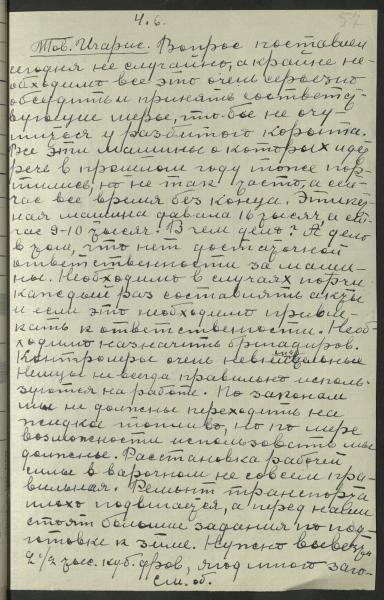 Ч.б.
57
Тов. Игарис. Вопрос поставлен
сегодня не случайно, а крайне не-
обходимо все это очень серьезно
обсудить и принять соответст-
вующие меры, что-бы не очу-
титься у разбитого корыта.
Все эти машины о которых идет
речь в прошлом году тоже пор-
тились, но не так часто, а сей-
час все время без конца. Этикет-
ная машина давала 16 тысяч, а сей-
час 9-10 тысяч. В чем дело? А дело
в том, что нет достаточной
ответственности за маши-
ны. Необходимо в случаях порчи
каждый раз составлять акты
и если это необходимо привле-
кать к ответственности. Необ-
ходимо назначить бригадиров.
Контролеры очень невнимательные
Немцы не всегда правильно исполь-
зуются на работе. По законам
мы не должны переходить на
жидкое топливо, но по мере
возможности использовать мы
должны. Расстановка рабочей
силы в варочном не совсем пра-
вильная. Ремонт транспорта
плохо подвигается, а перед нами
стоят большие задания по под-
готовке к зиме. Нужно вывезти
2 1/2 тыс. куб. дров, ягод много заго-
См. об.